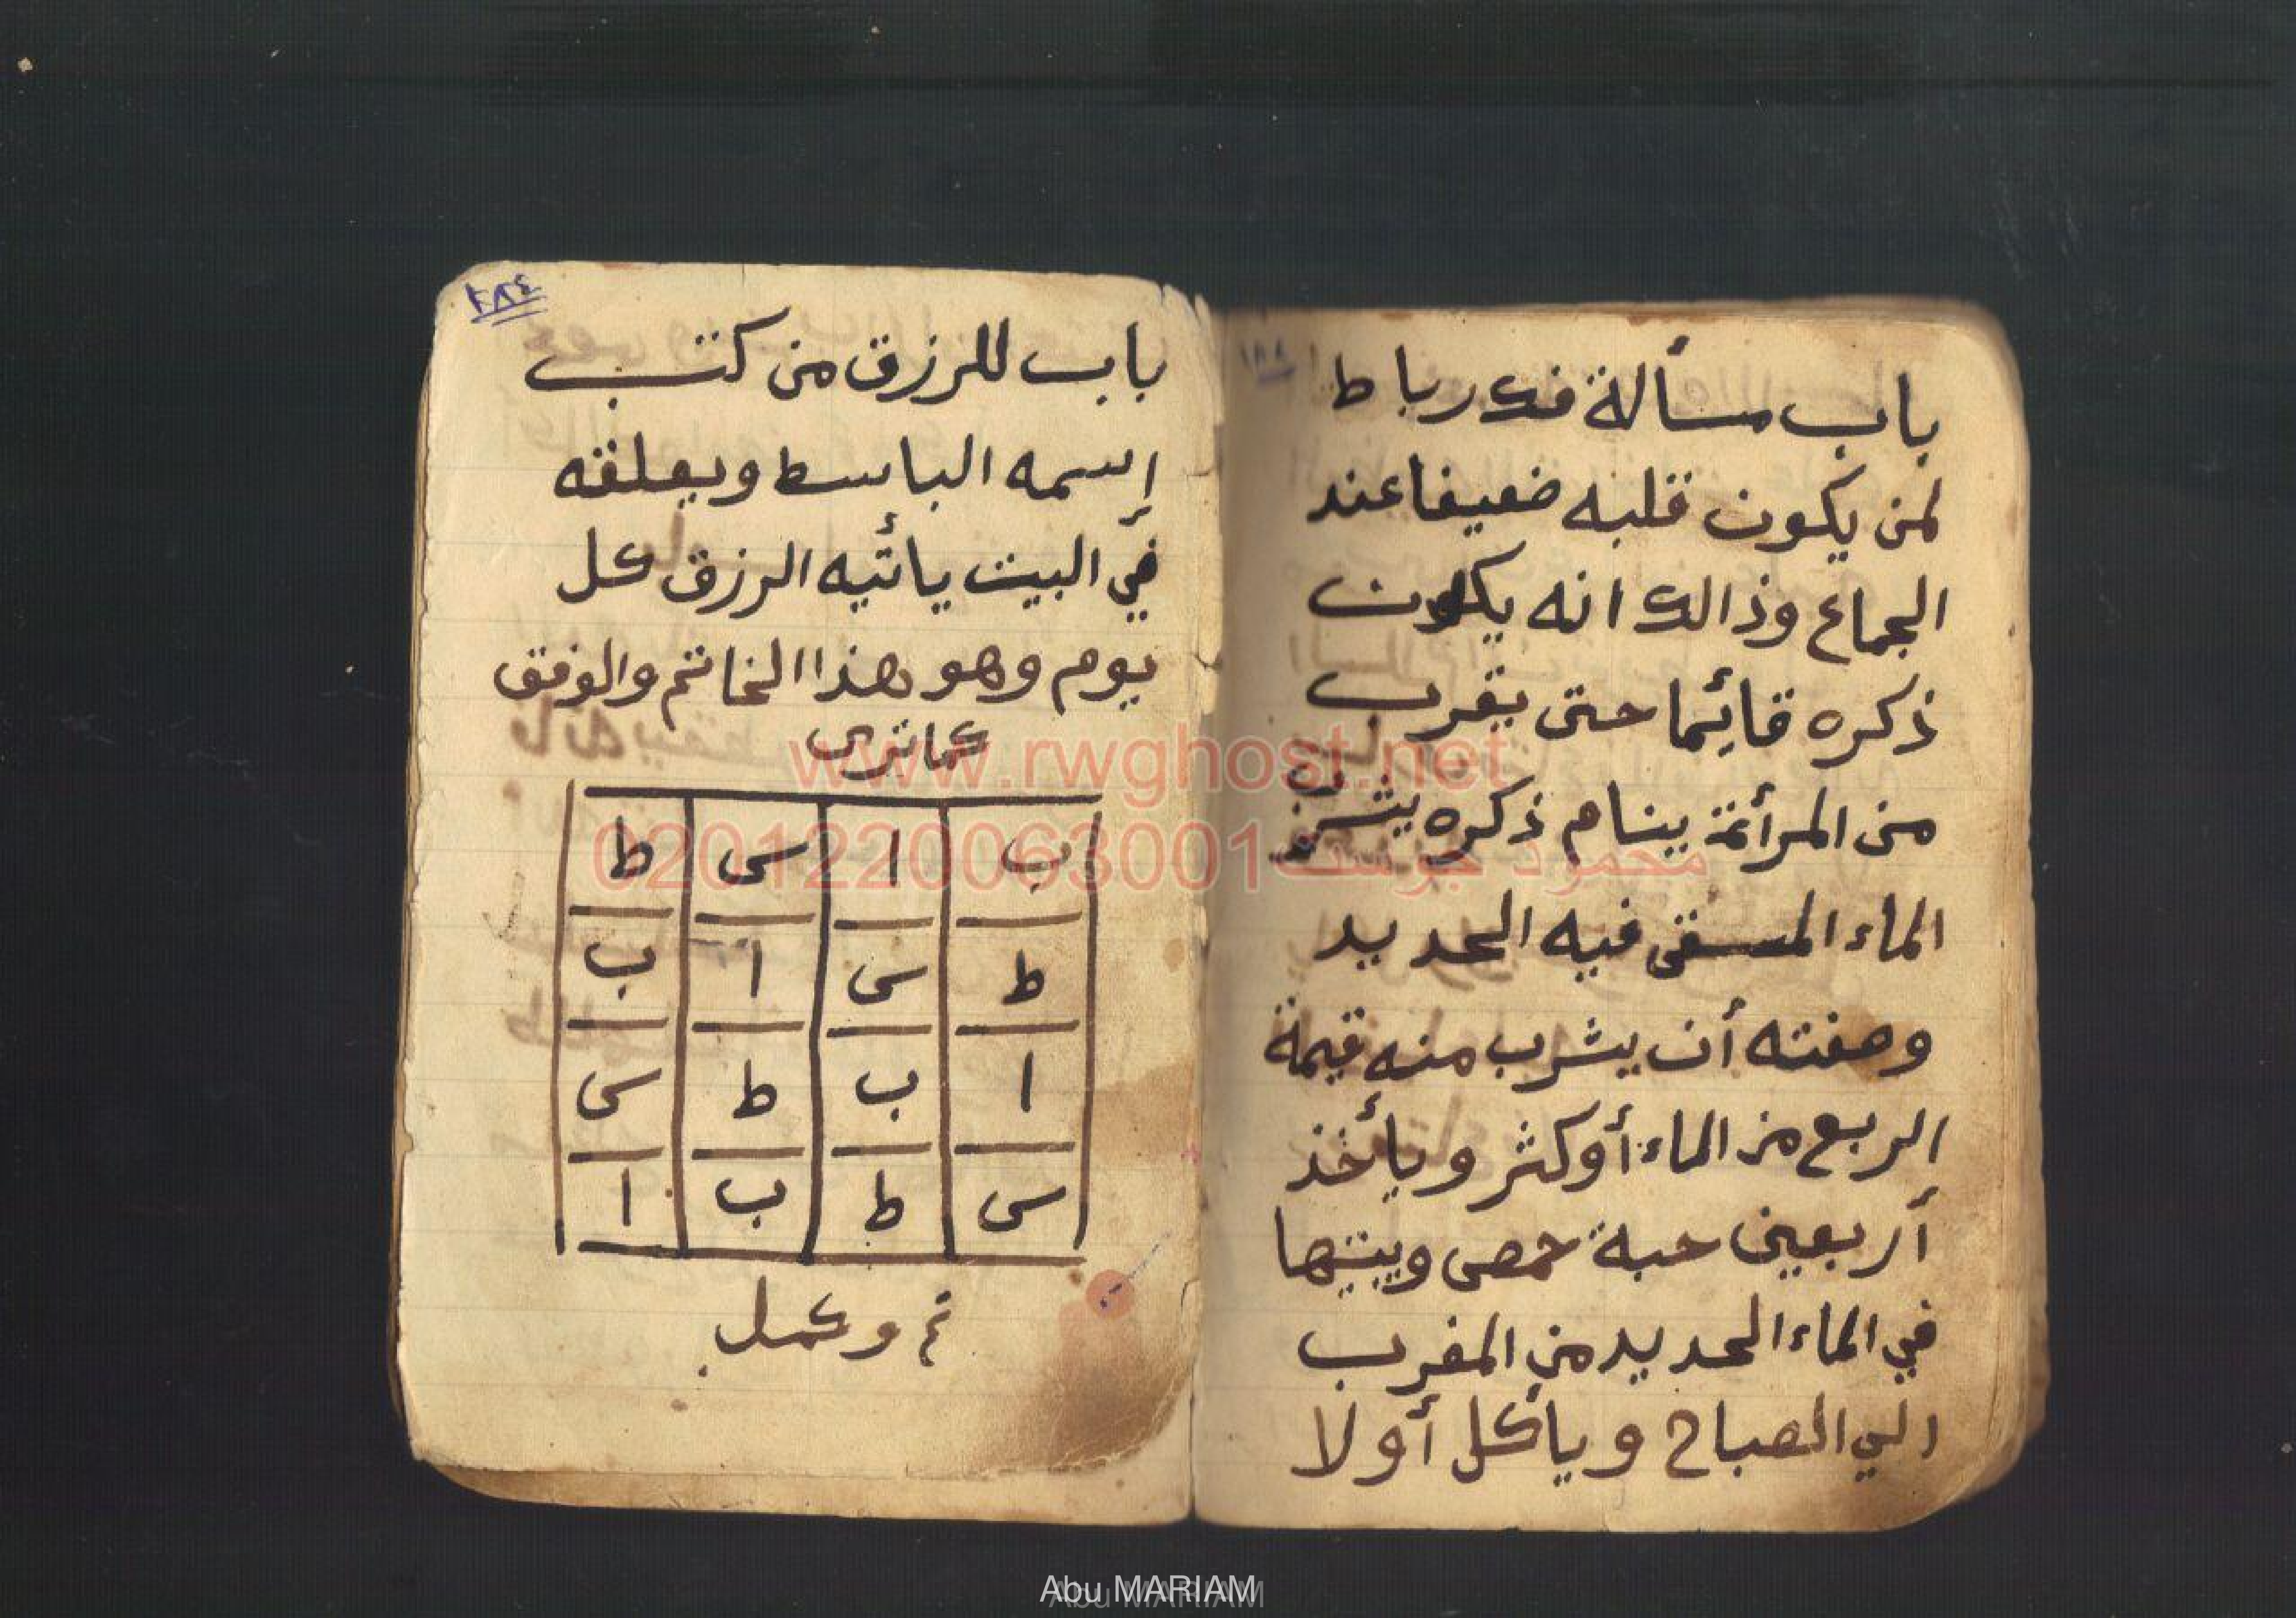 باب مسألة فك رباط
لمن يكون قلبه ضعيفا عند
الجماع وذالك انه يكون
ذكره قائما حتى يقرب
من المرأة ينام ذكره يشرب
الماء المسقى فيه الحديد
وصفته أن يشرب منه قيمة
الربع من الماء أوكثر ويأخذ
أربعين حبة حمص ويبيتها
في الماء الحديد من المغرب
الي الصباح وياكل أولا
٢٨٤
باب للرزق من كتب
إسمه الباسط ويعلقه
في البيت يأتيه الرزق كل
يوم وهو هذا الخاتم والوفق
كما ترى
ب ا س ط
ط س ا ب
ا ب ط س
س ط ب ا
تم وكمل
www.rwghost.net
محمود جوست 0201220063001
Abu MARIAM